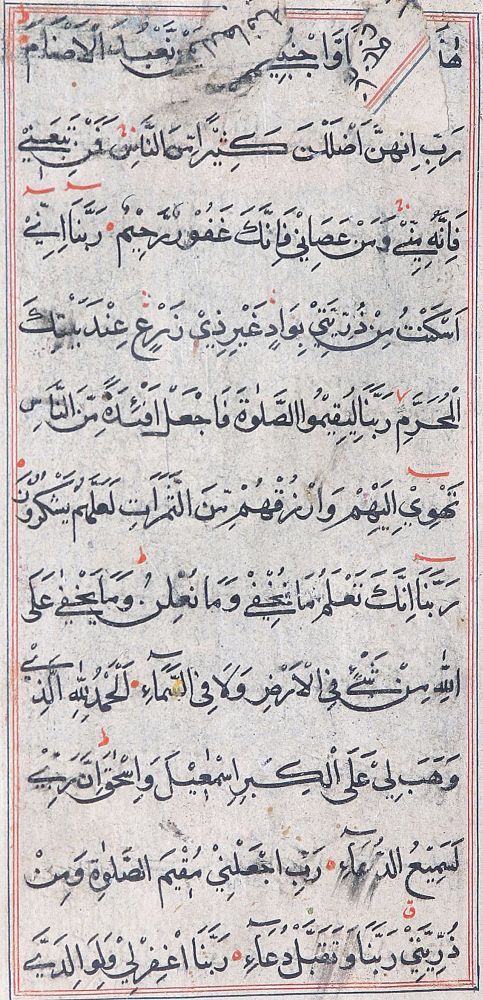 هٰذَا اٰمِنًا وَّاجْنُبْنِيْ نَّعْبُدَ الْاَصْنَامَ
رَبِّ اِنَّهُنَّ اَضْلَلْنَ كَثِيْرًا مِّنَ النَّاسِ فَمَنْ تَبِعَنِيْ
فَاِنَّهٗ مِنِّيْ وَمَنْ عَصَانِيْ فَاِنَّكَ غَفُوْرٌ رَّحِيْمٌ رَبَّنَا اِنِّيْ
اَسْكَنْتُ مِنْ ذُرِّيَّتِيْ بِوَادٍ غَيْرِ ذِيْ زَرْعٍ عِنْدَ بَيْتِكَ
الْمُحَرَّمِ رَبَّنَا لِيُقِيْمُوا الصَّلٰوةَ فَاجْعَلْ اَفْئِدَةً مِّنَ النَّاسِ
تَهْوِيْ اِلَيْهِمْ وَارْزُقْهُمْ مِّنَ الثَّمَرَاتِ لَعَلَّهُمْ يَشْكُرُوْنَ
رَبَّنَا اِنَّكَ تَعْلَمُ مَا نُخْفِيْ وَمَا نُعْلِنُ وَمَا يَخْفٰى عَلَى
اللّٰهِ مِنْ شَيْءٍ فِي الْاَرْضِ وَلَا فِي السَّمَآءِ اَلْحَمْدُ لِلّٰهِ الَّذِيْ
وَهَبَ لِيْ عَلَى الْكِبَرِ اِسْمٰعِيْلَ وَاِسْحٰقَ اِنَّ رَبِّيْ
لَسَمِيْعُ الدُّعَآءِ رَبِّ اجْعَلْنِيْ مُقِيْمَ الصَّلٰوةِ وَمِنْ
ذُرِّيَّتِيْ رَبَّنَا وَتَقَبَّلْ دُعَآءِ رَبَّنَا اغْفِرْ لِيْ وَلِوَالِدَيَّ